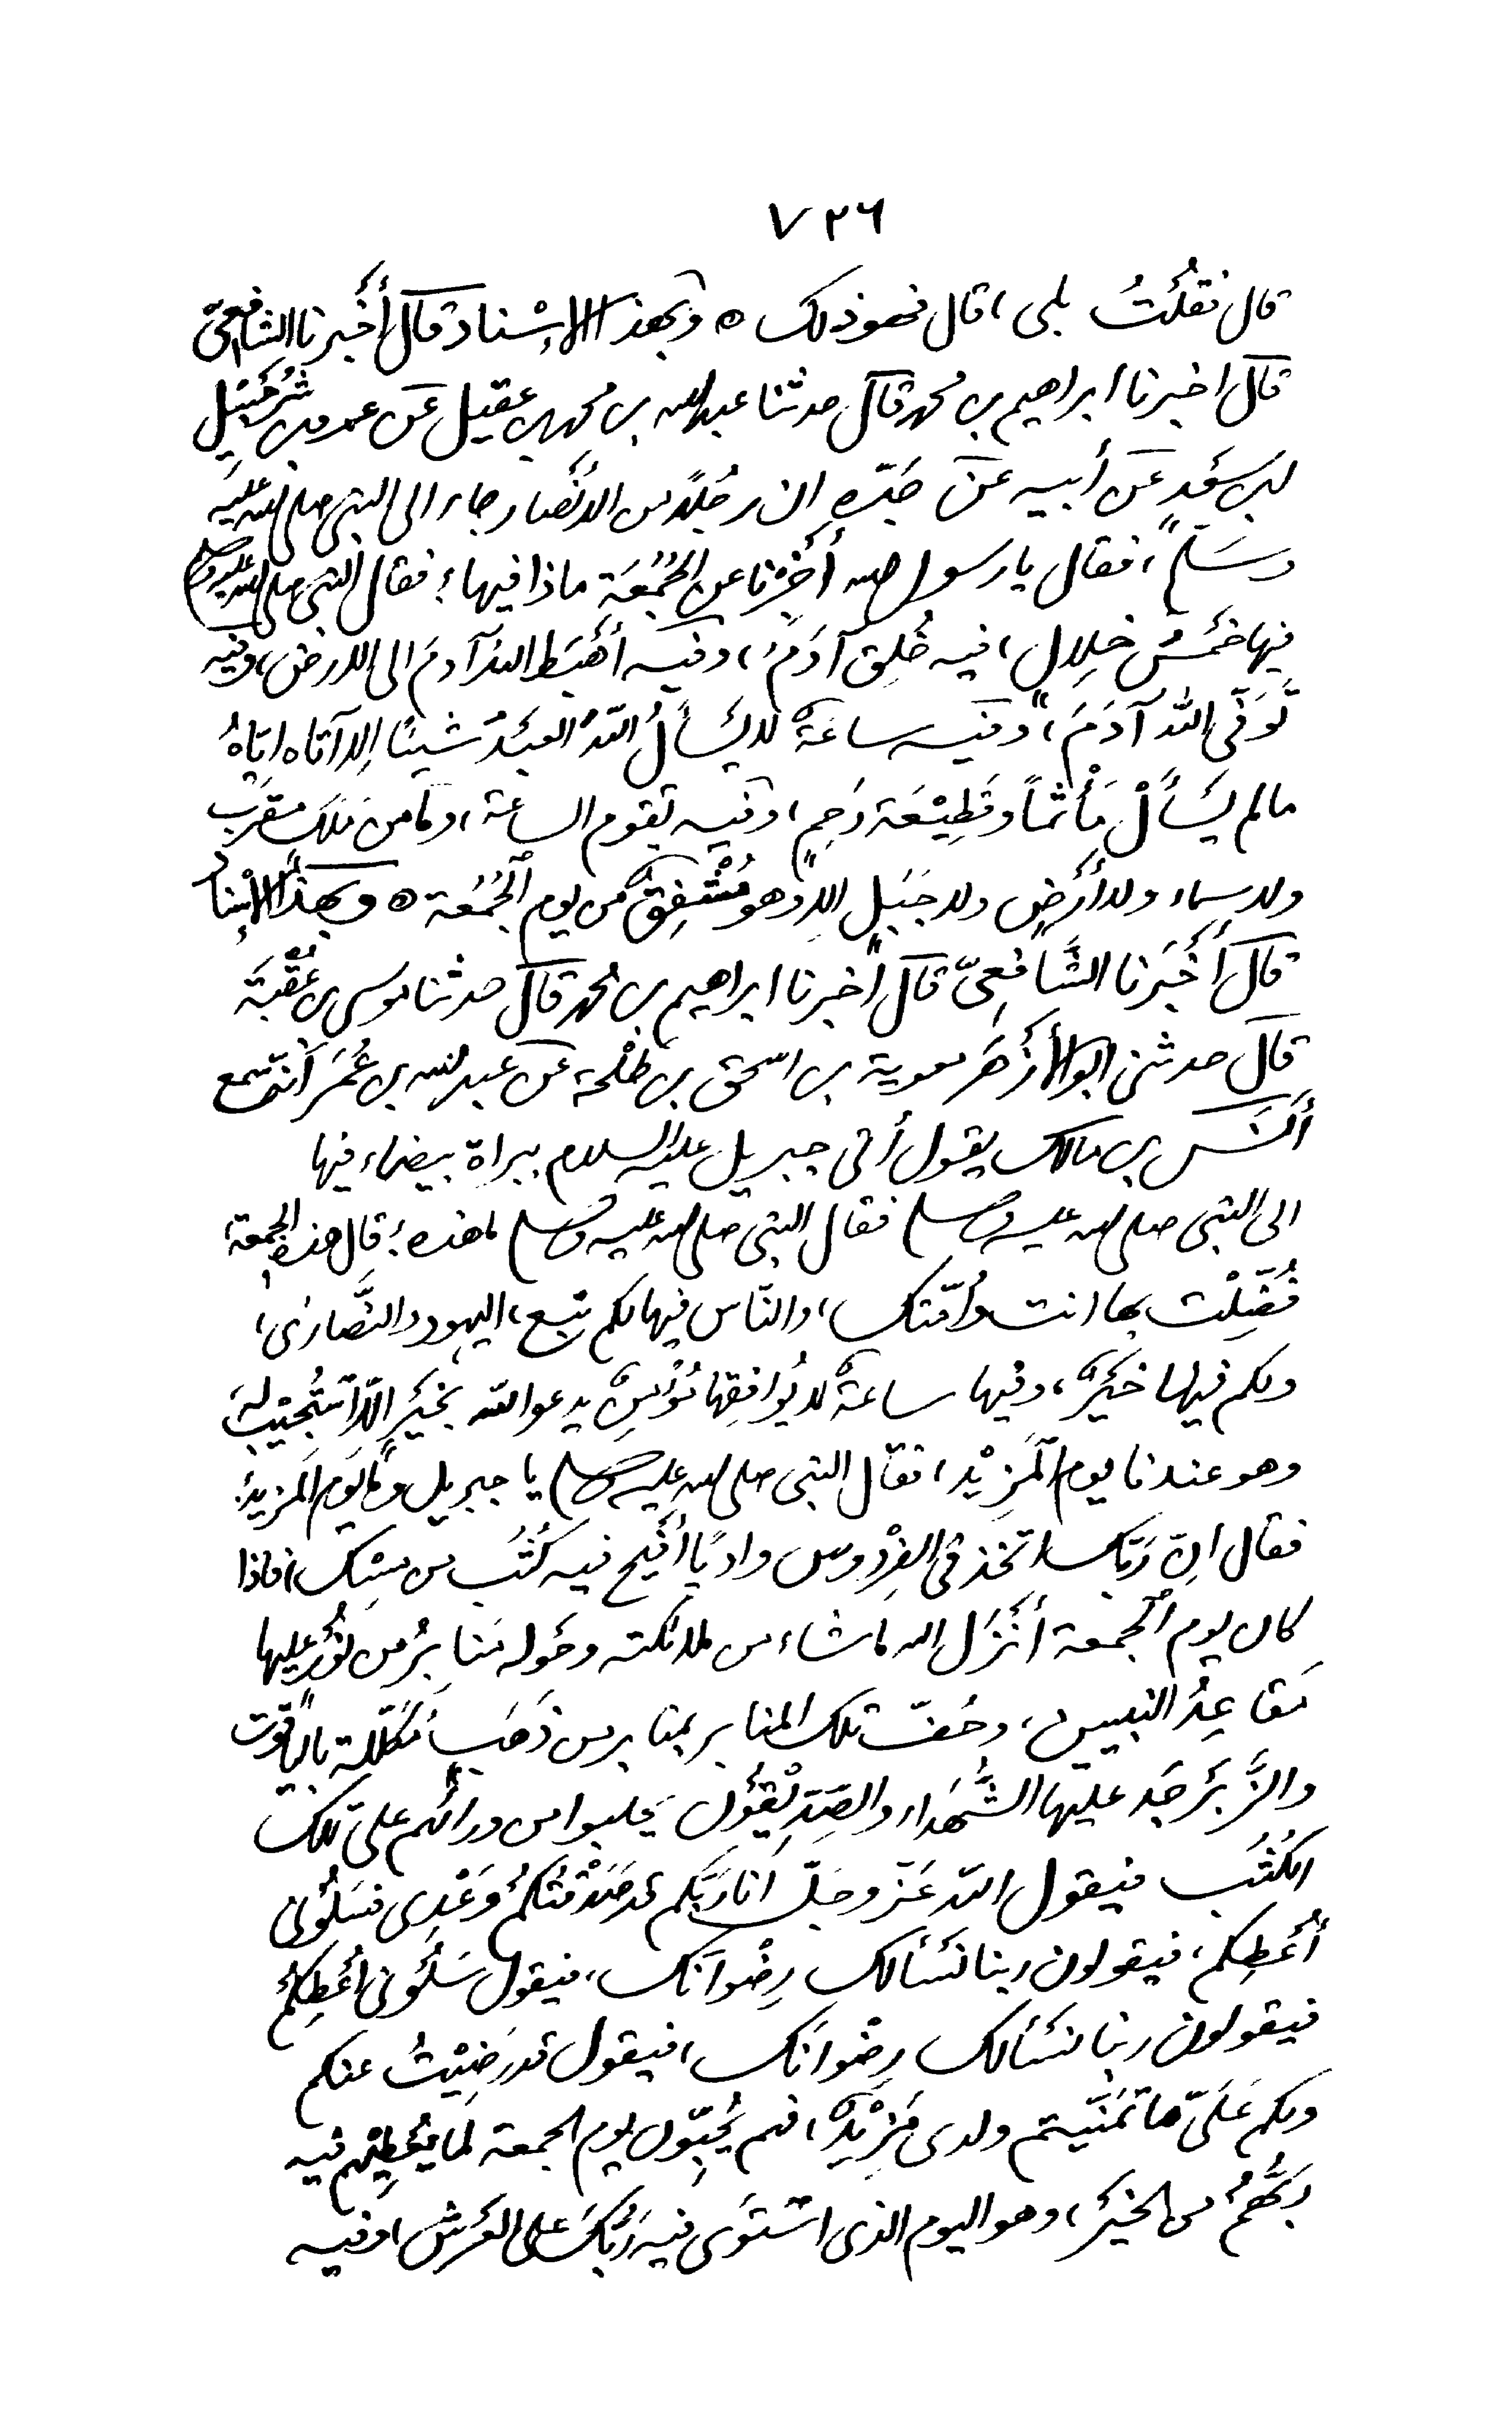 ٧٢٦
قال فقلْتُ بلى، قال فهو ذلك ه وبهذا الإسْناد قال أخْبرنا الشافعىّ
قال اخبرنا ابراهيم بن محمد قال حدثنا عبد الله بن محمد بن عقيل عن عمرو بن شُرَحْبيْل
بن سَعْدٍ عَن أبيه عَن جَدّه ان رجُلًا من الانْصار جاء الى النبى صلى الله عليه
وسَلّم، فقال يا رسول الله أخْبِرْنا عن الجُمُعَة ماذا فيها؟ فقال النبىّ صلى الله عليه وسلم
فيها خمْسُ خِلال، فيه خُلِق آدَمُ، وفيه أهْبَط اللهُ آدمَ الى الارض، وفيه
تَوَفّى اللهُ آدَمَ، وفيه ساعَةٌ لا يَسْأَلُ اللهَ العَبْدُ شيئًا إلا آتاه ايّاهُ
ما لم يَسْأَلْ مَأْثَمًا وقَطِيْعَة رَحِمٍ، وفيه تقوم الساعة، وما من مَلَك مقرّب
ولا سماء ولا أرْضٍ ولا جَبَلٍ الا وهو مُشْفِقٌ من يوم الجُمُعَة ه وبهذا الإسْناد
قال أخْبَرنا الشَّافعىّ قال اخبرنا ابراهيم بن محمد قال حدثنا موسى بن عُقْبَة
قال حدثنى ابو الأزْهَر معوية بن اسحٰق بن طلْحة عن عبد الله بن عُمَر أنّه سمع
أنَس بن مالك يقول أتى جبريل عليه السلام بمراة بيضاء فيها
الى النبى صلى الله عليه وسلم فقال النبى صلى الله عليه وسلم ما هذه؟ قال هذه الجمعة،
فُضِّلْت بها انت وأُمّتك، والنّاس فيها لكم تبَع، اليهود والنَّصارى،
ولكم فيها خَيْرٌ، وفيها ساعةٌ لا يُوافِقها مُؤْمنٌ يدعو الله بخَيْرٍ الّا اسْتُجِيْبَ له
وهو عندنا يوم المَزِيْد، فقال النبى صلى الله عليه وسلم يا جبريل وما يَوم المَزيدُ؟
فقال انّ رَبّك اتّخذ فى الفِرْدوس واديًا أفْيَح فيه كُثُبُ من مِسْك، فاذا
كان يوم الجُمعة أنْزَل الله ما شاء من ملائكته وحَوْله مَنابِرُ من نُوْرٍ عليها
مَقاعِدُ النبيين، وحُفّت تلك المنابر بمنابر من ذهَب مُكلّلة بالياقوت
والزَّبَرْجَد عليها الشُّهَداء والصِّدِّيْقُوْن يجلسوا من ورائهم على تلك
الكُثُب فيقول الله عَزّ وجَلّ أنا رَبّكم قد صَدَقْتُكُمْ وَعْدِى فسَلُوْنى
أُعْطِكم، فيقولون ربنا نَسْألك رِضْوانَك، فيقول سَلُوْنى أُعْطِكُمْ
فيقولون ربنا نسْألك رِضْوانَك، فيقول قد رَضِيْتُ عنكم
ولكم عَلَىّ ما تَمَنّيتم ولدى مَزِيْدٌ، فهم يُحِبّوْن يوم الجمعة لِما يُعْطِيْهم فيه
رَبُّهُمْ من الخَيْر، وهو اليوم الذى اسْتَوى فيه رَبُّكَ على العَرش، وفيه